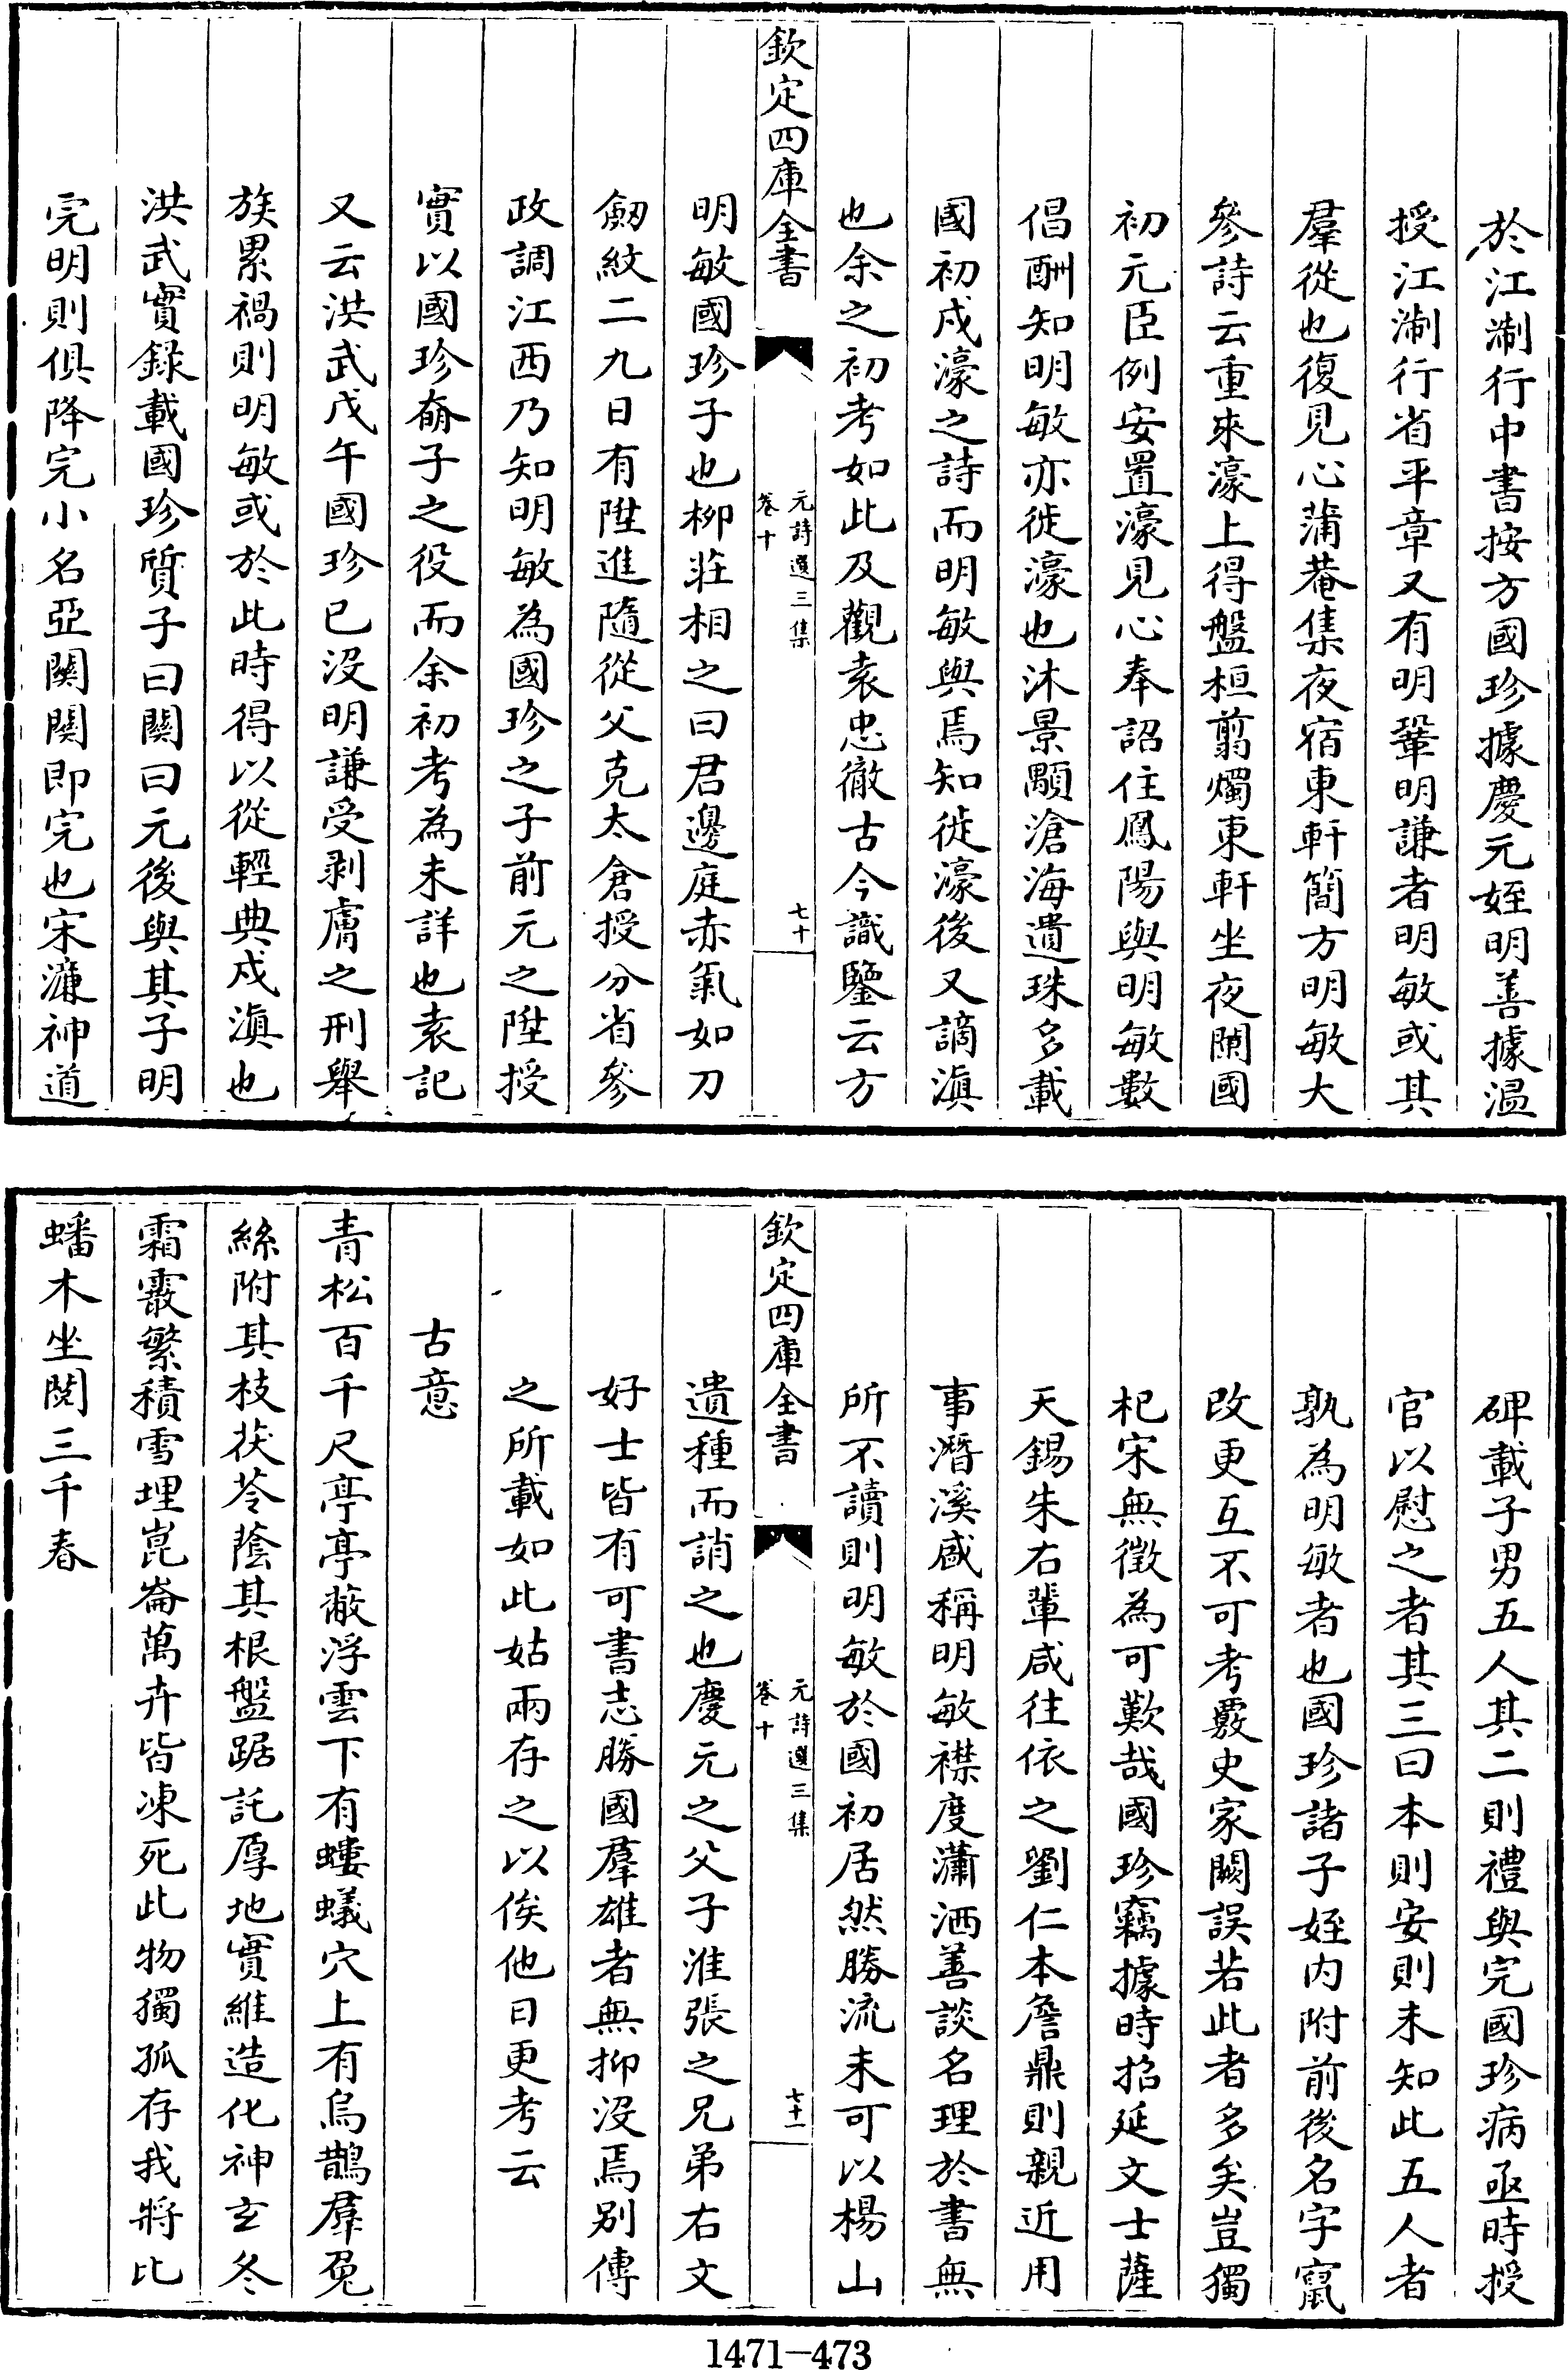 於江浙行中書按方國珍據慶元姪明善據温
授江浙行省平章又有明鞏明謙者明敏或其
羣從也復見心蒲菴集夜宿東軒簡方明敏大
參詩云重來濠上得盤桓翦燭東軒坐夜闌國
初元臣例安置濠見心奉詔住鳳陽與明敏數
倡酬知明敏亦徙濠也沐景顒滄海遺珠多載
國初戍濠之詩而明敏與焉知徙濠後又謫滇
也余之初考如此及觀袁忠徹古今識鑒云方
欽定四庫全書
元詩選三集
卷十
七十
明敏國珍子也柳莊相之曰君邊庭赤氣如刀
劒紋二九日有陞進隨從父克太倉授分省參
政調江西乃知明敏為國珍之子前元之陞授
實以國珍奔子之役而余初考為未詳也袁記
又云洪武戊午國珍已没明謙受剥膚之刑舉
族累禍則明敏或於此時得以從輕典戍滇也
洪武實録載國珍質子曰關曰元後與其子明
完明則俱降完小名亞關關即完也宋濂神道
碑載子男五人其二則禮與完國珍病亟時授
官以慰之者其三曰本則安則未知此五人者
孰為明敏者也國珍諸子姪内附前後名字竄
改更互不可考覈史家闕誤若此者多矣豈獨
杞宋無徵為可歎哉國珍竊據時招延文士薩
天錫朱右輩咸往依之劉仁本詹鼎則親近用
事潛溪盛稱明敏襟度瀟洒善談名理於書無
所不讀則明敏於國初居然勝流未可以楊山
欽定四庫全書
元詩選三集
卷十
七十一
遺種而誚之也慶元之父子淮張之兄弟右文
好士皆有可書志勝國羣雄者無抑沒焉别傳
之所載如此姑兩存之以俟他日更考云
古意
青松百千尺亭亭蔽浮雲下有螻蟻穴上有烏鵲羣兔
絲附其枝茯苓蔭其根盤踞託厚地實維造化神玄冬
霜霰繁積雪埋崑崙萬卉皆凍死此物獨孤存我將比
蟠木坐閲三千春
1471—473